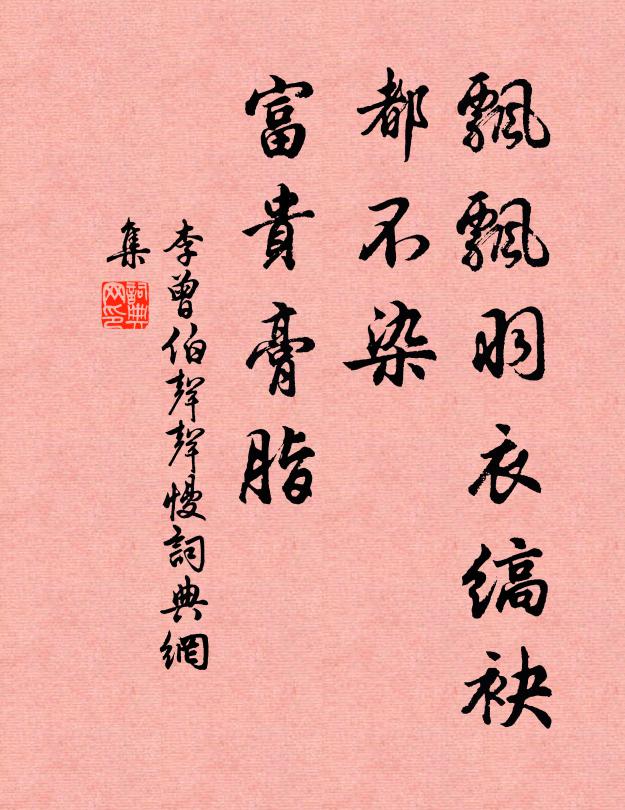 飄飄羽衣縞袂
都不染
富貴膏脂
李曾伯聲聲慢詞典網
集
詞典網印